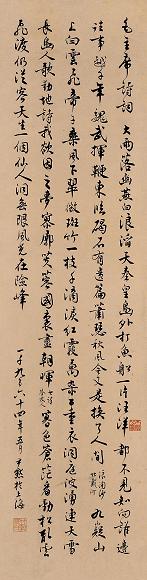 毛主席詩詞　大雨落幽燕白浪滔天秦皇島外打魚船一片汪洋都不見知向誰邊
往事越千年魏武揮鞭東臨碣石有遺篇蕭瑟秋風今又是換了人間 浪淘沙 北戴河 九嶷山
上白雲飛帝子乘風下翠微斑竹一枝千滴淚紅霞萬朵百重衣洞庭波湧連天雪
長島人歌動地詩我欲因之夢寥廓芙蓉國裏盡朝暉 七律 答友人 暮色蒼茫看勁松亂雲
飛渡仍從容天生一個仙人洞無限風光在險峰
一千九百六十四年五月 尹默於上海